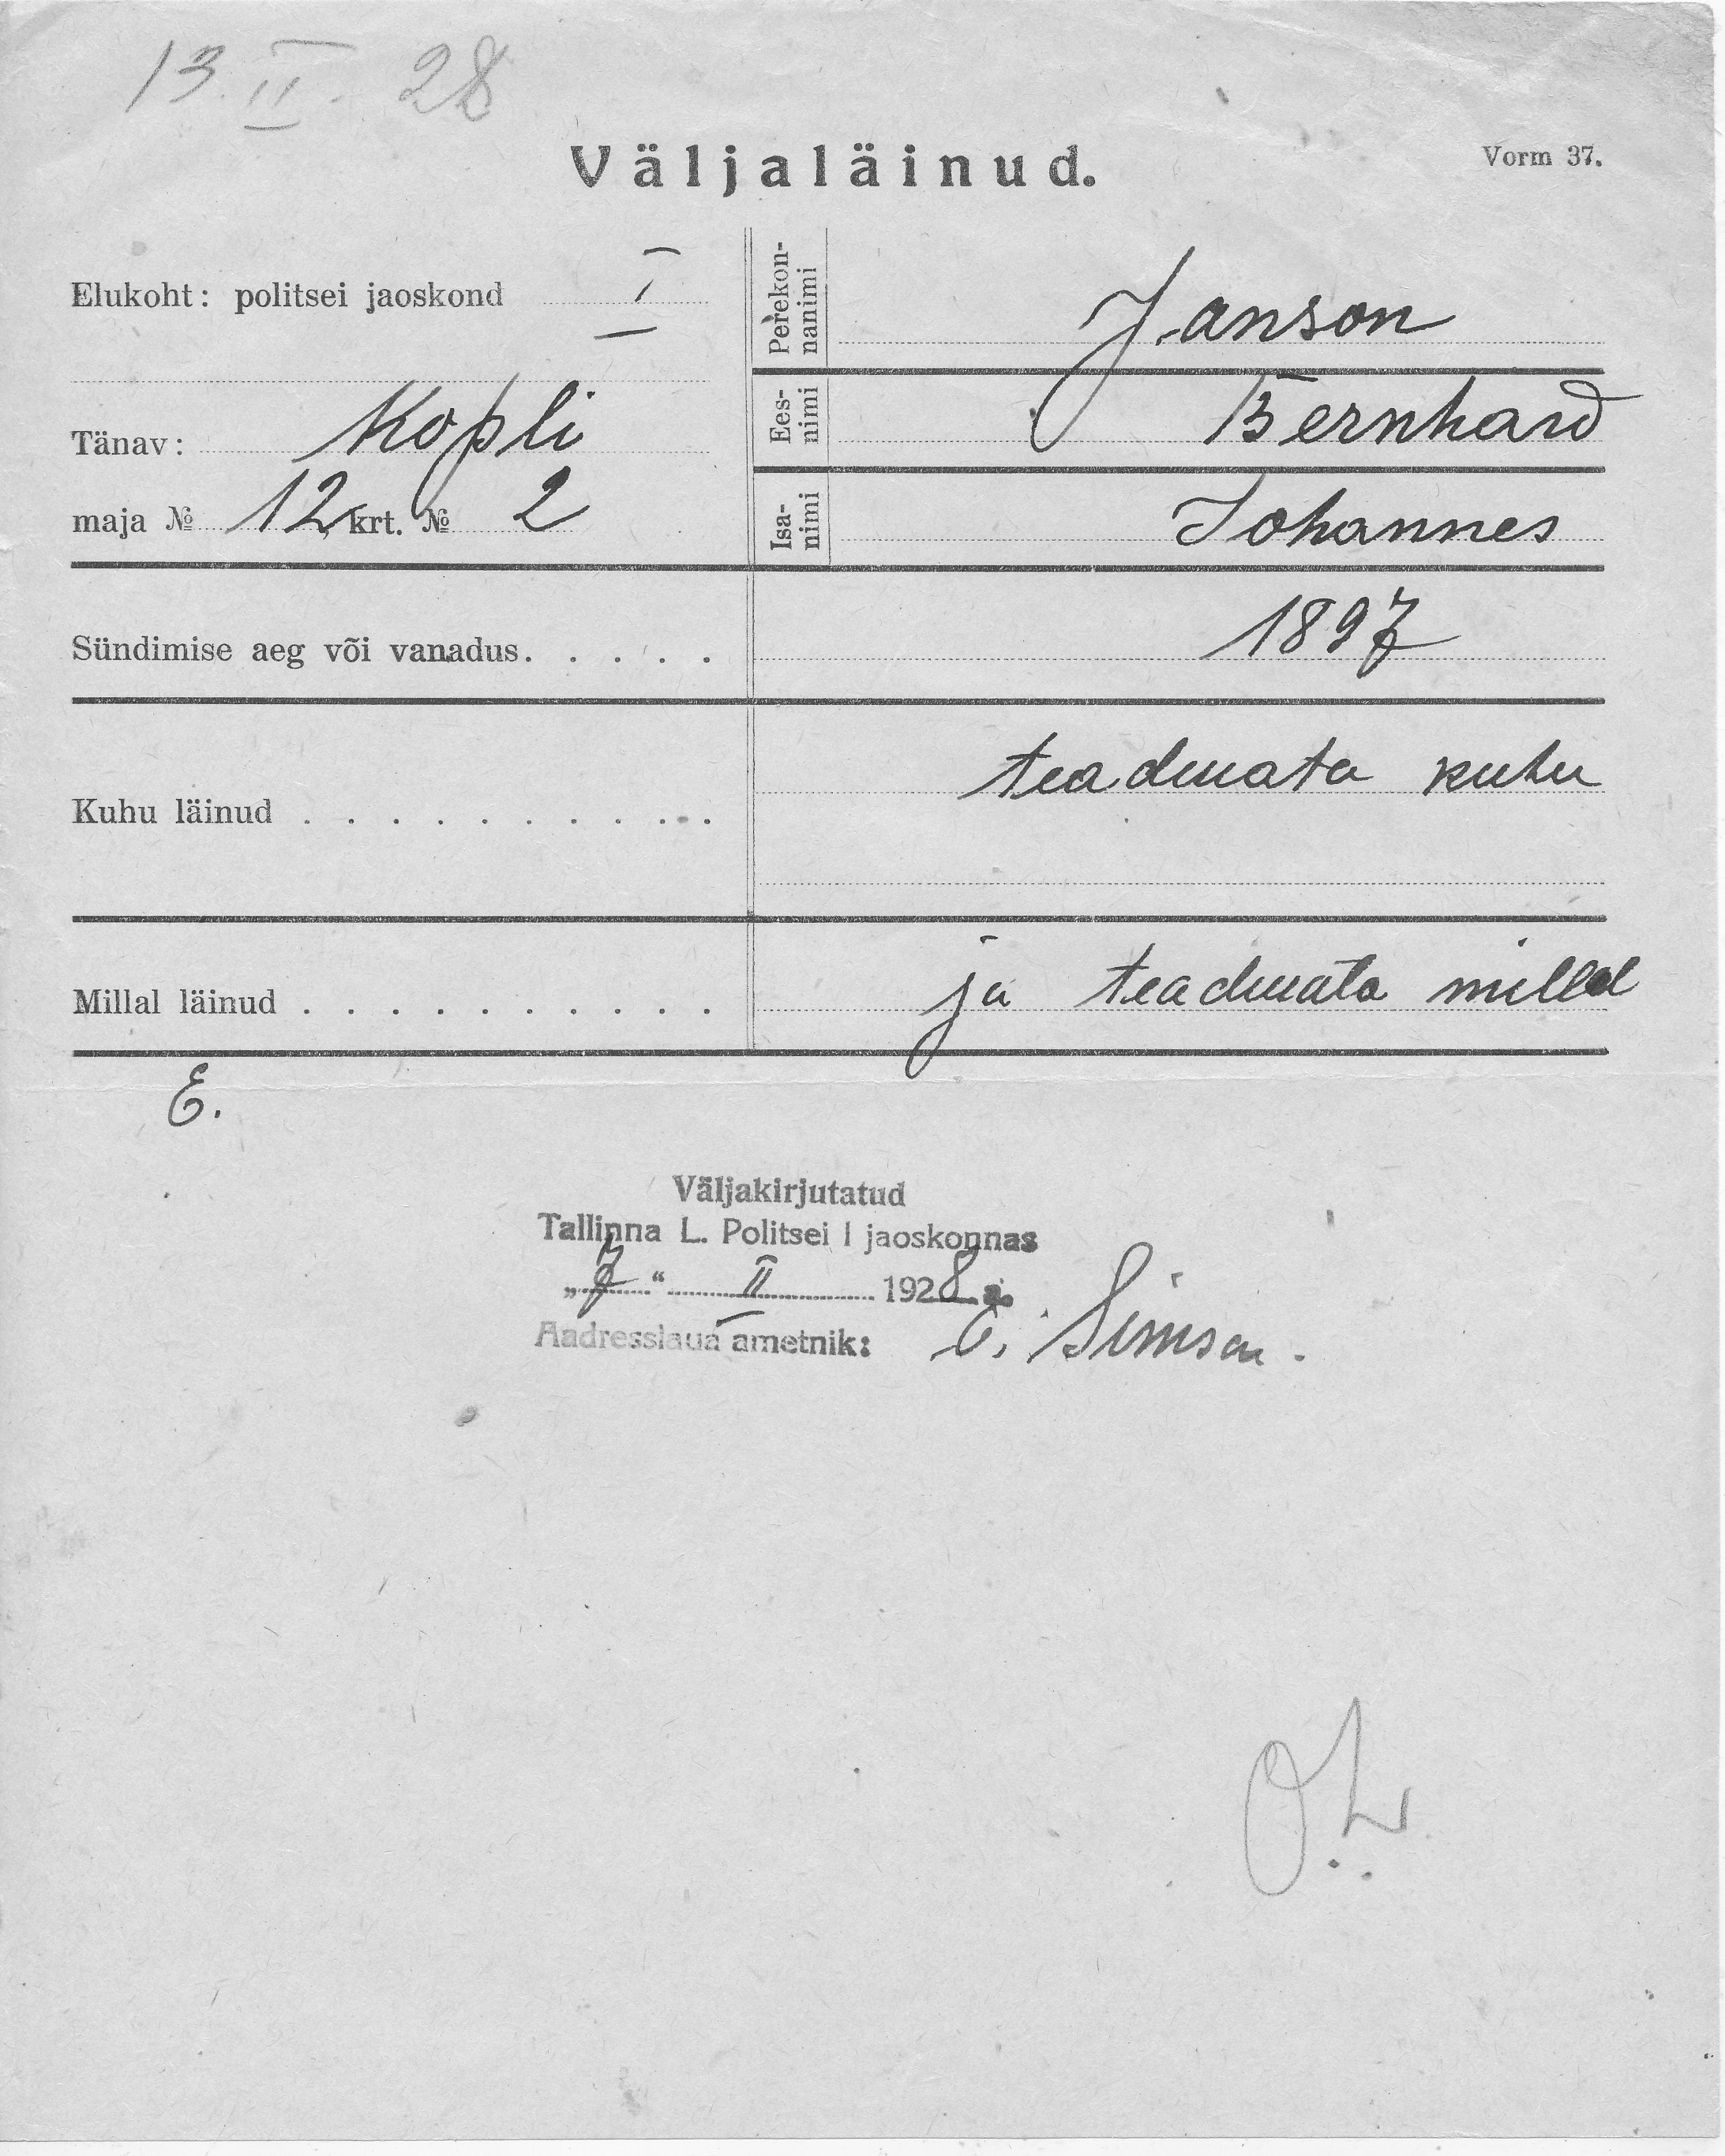 13. II. 28
Väljaläinud.
Vorm 37.
Elukoht: politsei jaoskond I
Tänav: Kopli
maja № 12, krt. № 2
Perekon-
nanimi
Janson
Ees-
nimi
Bernhard
Isa-
nimi
Johannes
Sündimise aeg või vanadus. . . . . 1897
Kuhu läinud . . . . . . . . . . teadmata kuhu
Millal läinud . . . . . . . . . . ja teadmata millal
E.
Väljakirjutatud
Tallinna L. Politsei I jaoskonnas
„7“ II 1928 a.
Aadresslaua ametnik: E. Simson.